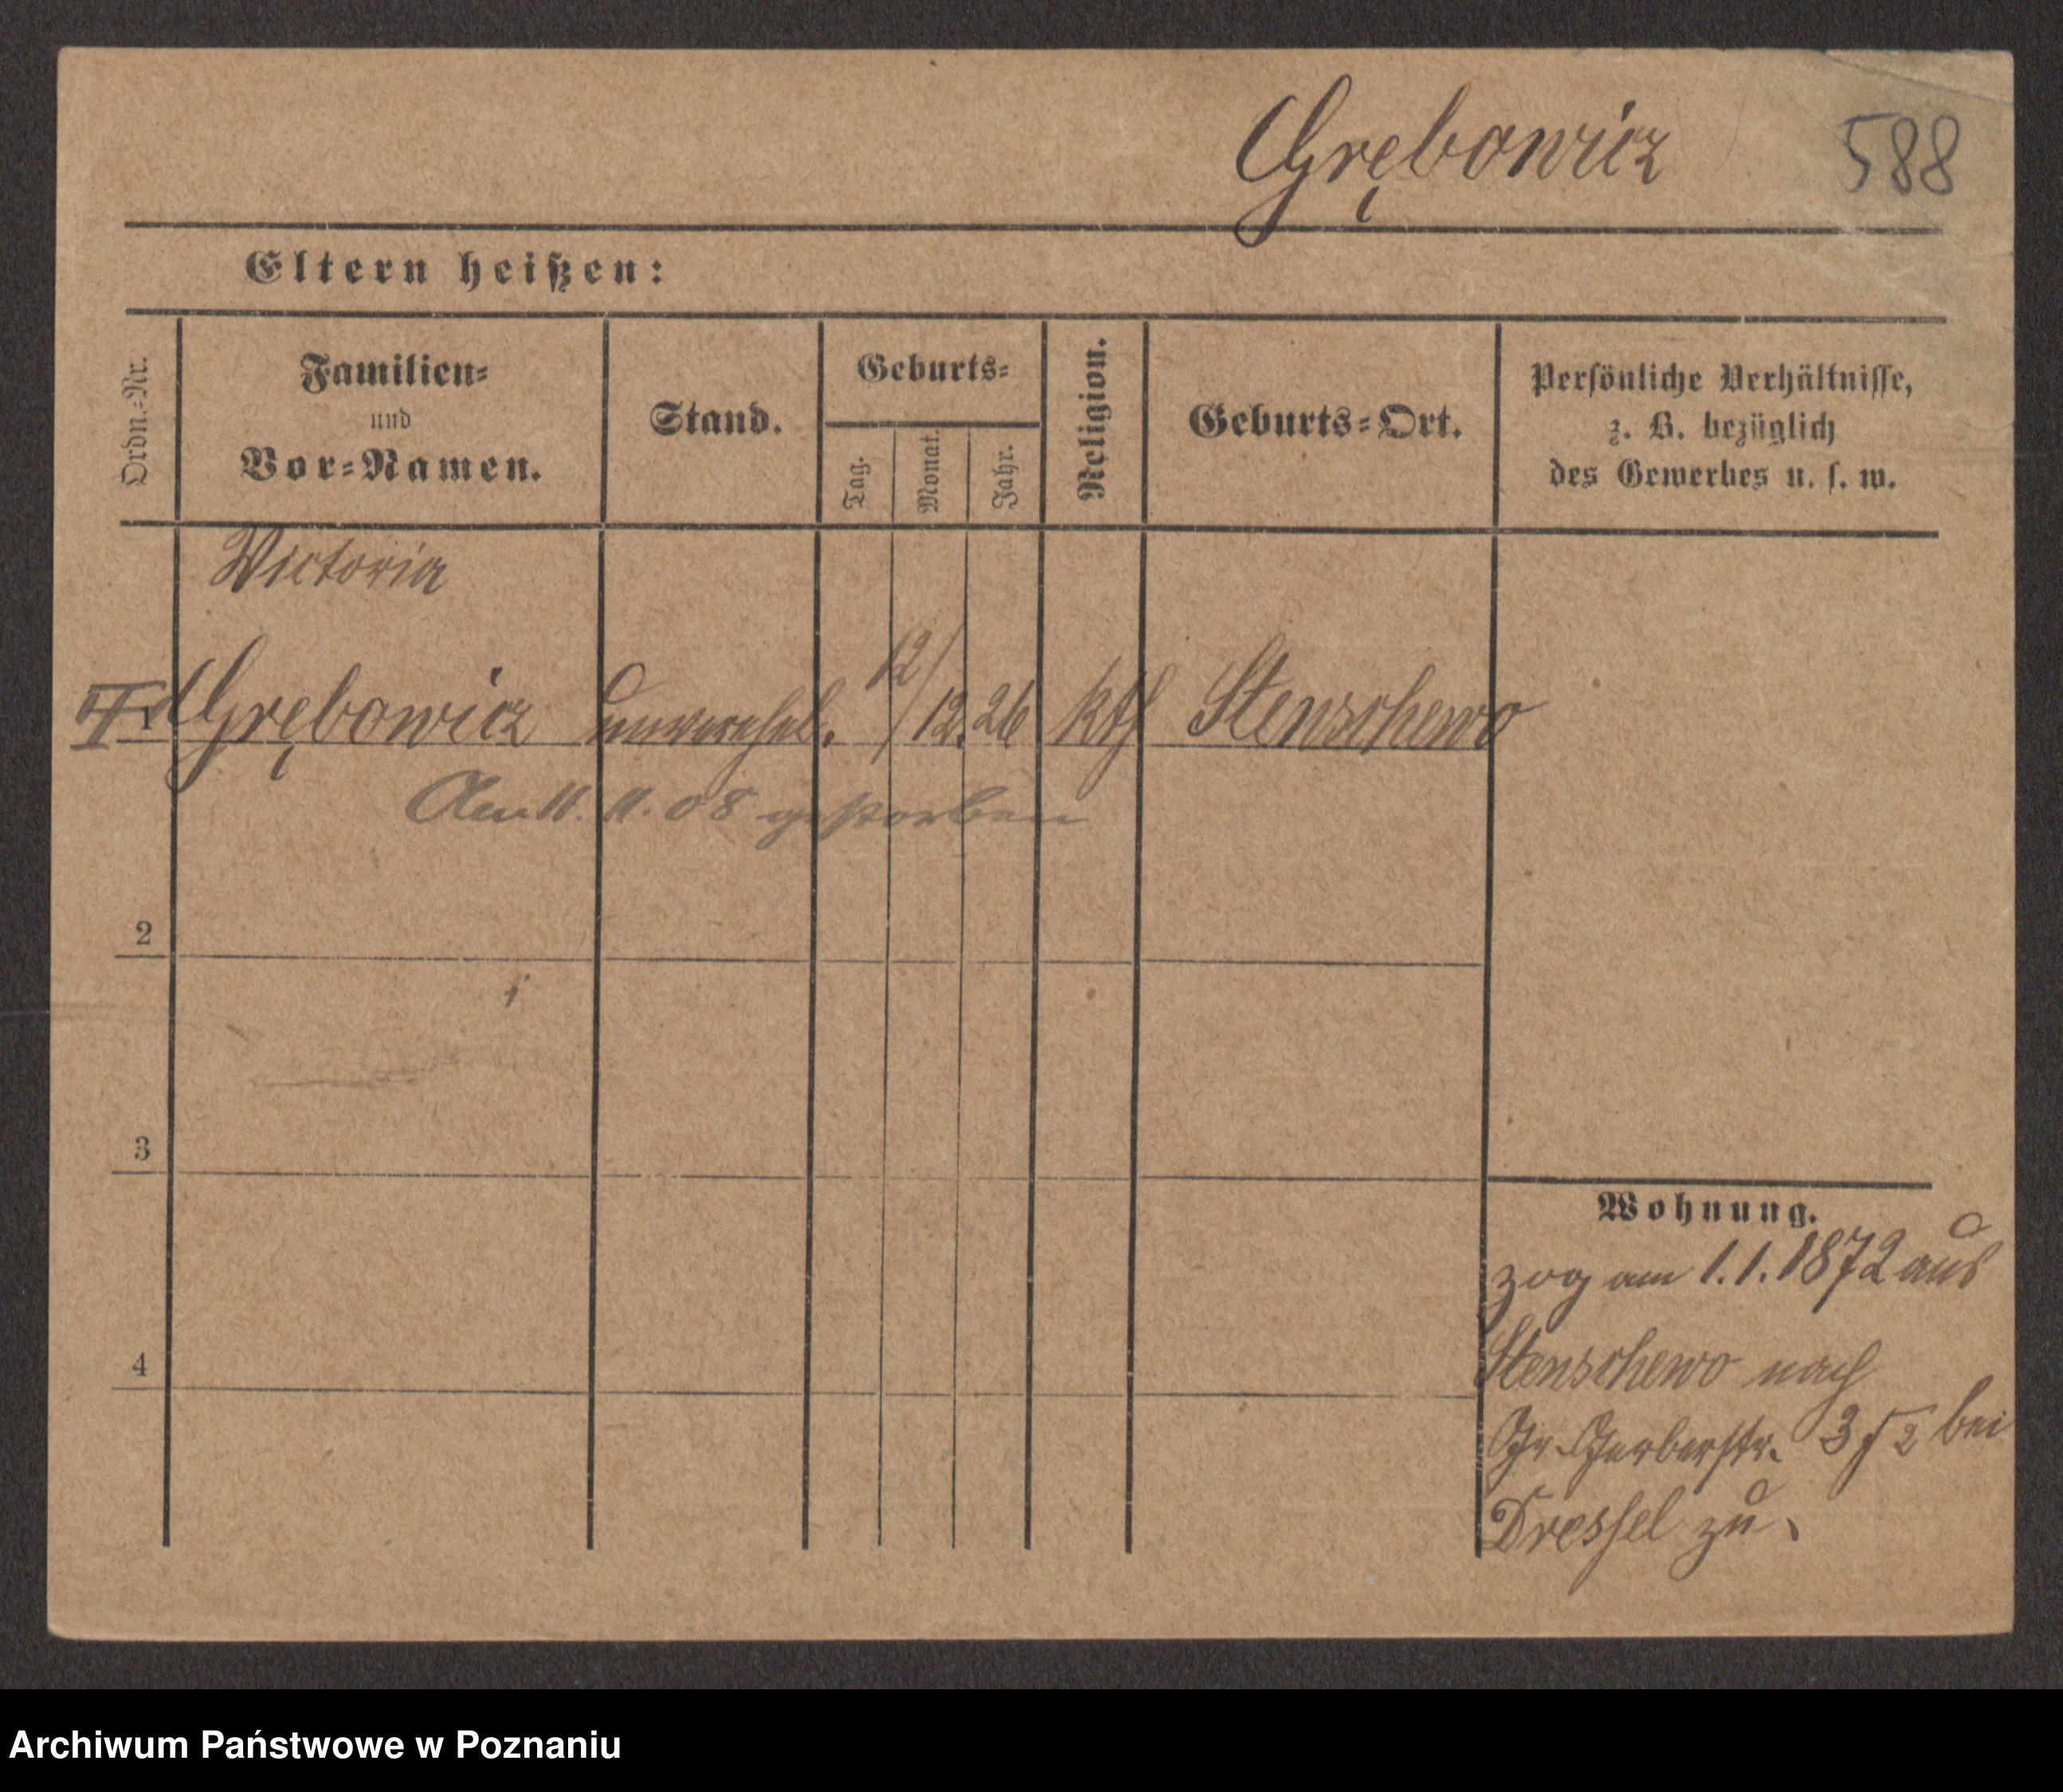 Grębowicz 588
Eltern heißen:
Ordn.-Nr.
Familien-
und
Vor-Namen.
Stand.
Geburts-
Tag.
Monat.
Jahr.
Religion.
Geburts-Ort.
Persönliche Verhältnisse,
z. B. bezüglich
des Gewerbes u. s. w.
Victoria
1 Grębowicz unverehel. 12/12. 26 kth Stenschewo
Am 11. 11. 08 gestorben
2
3
4
Wohnung.
zog am 1.1.1872 aus
Stenschewo nach
Gr. Gerberstr. bei
Dressel zu.
Archiwum Państwowe w Poznaniu